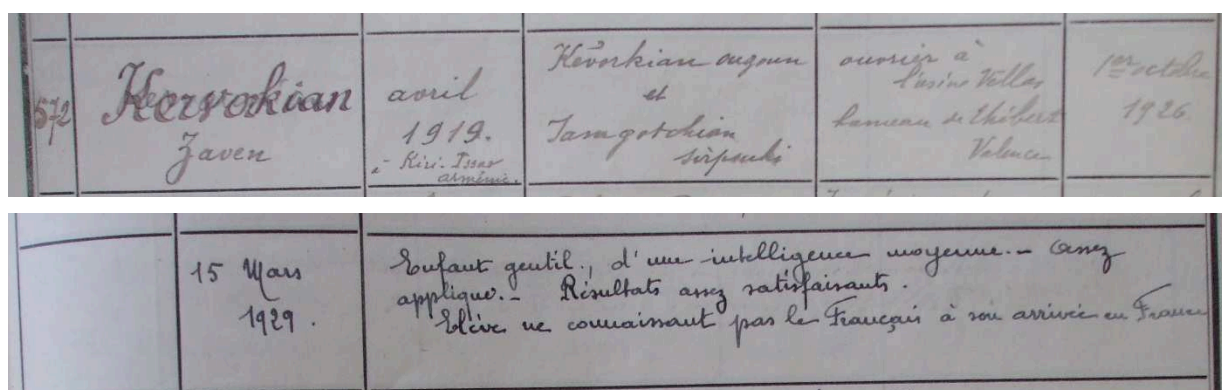 572
Kervorkian
Zaven
avril
1919.
à Kiri-Issar
arménie.
Kévorkian ougoun
et
Tamgotchian
sirpouhi
ouvrier à
l'usine Vellas
hameau de Thibert
Valence
1er octobre
1926.
15 Mars
1929.
Enfant gentil, d'une intelligence moyenne. - Assez
appliqué. - Résultats assez satisfaisants.
Elève ne connaissant pas le Français à son arrivée en France